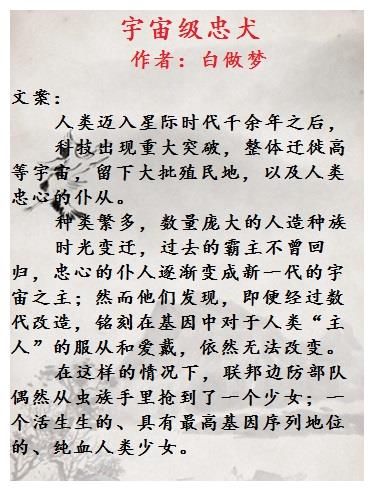 宇宙级忠犬
作者：白做梦
文案：
人类迈入星际时代千余年之后，
科技出现重大突破，整体迁徙高
等宇宙，留下大批殖民地，以及人类
忠心的仆从。
种类繁多，数量庞大的人造种族
时光变迁，过去的霸主不曾回
归，忠心的仆人逐渐变成新一代的宇
宙之主；然而他们发现，即便经过数
代改造，铭刻在基因中对于人类“主
人”的服从和爱戴，依然无法改变。
在这样的情况下，联邦边防部队
偶然从虫族手里抢到了一个少女；一
个活生生的、具有最高基因序列地位
的、纯血人类少女。